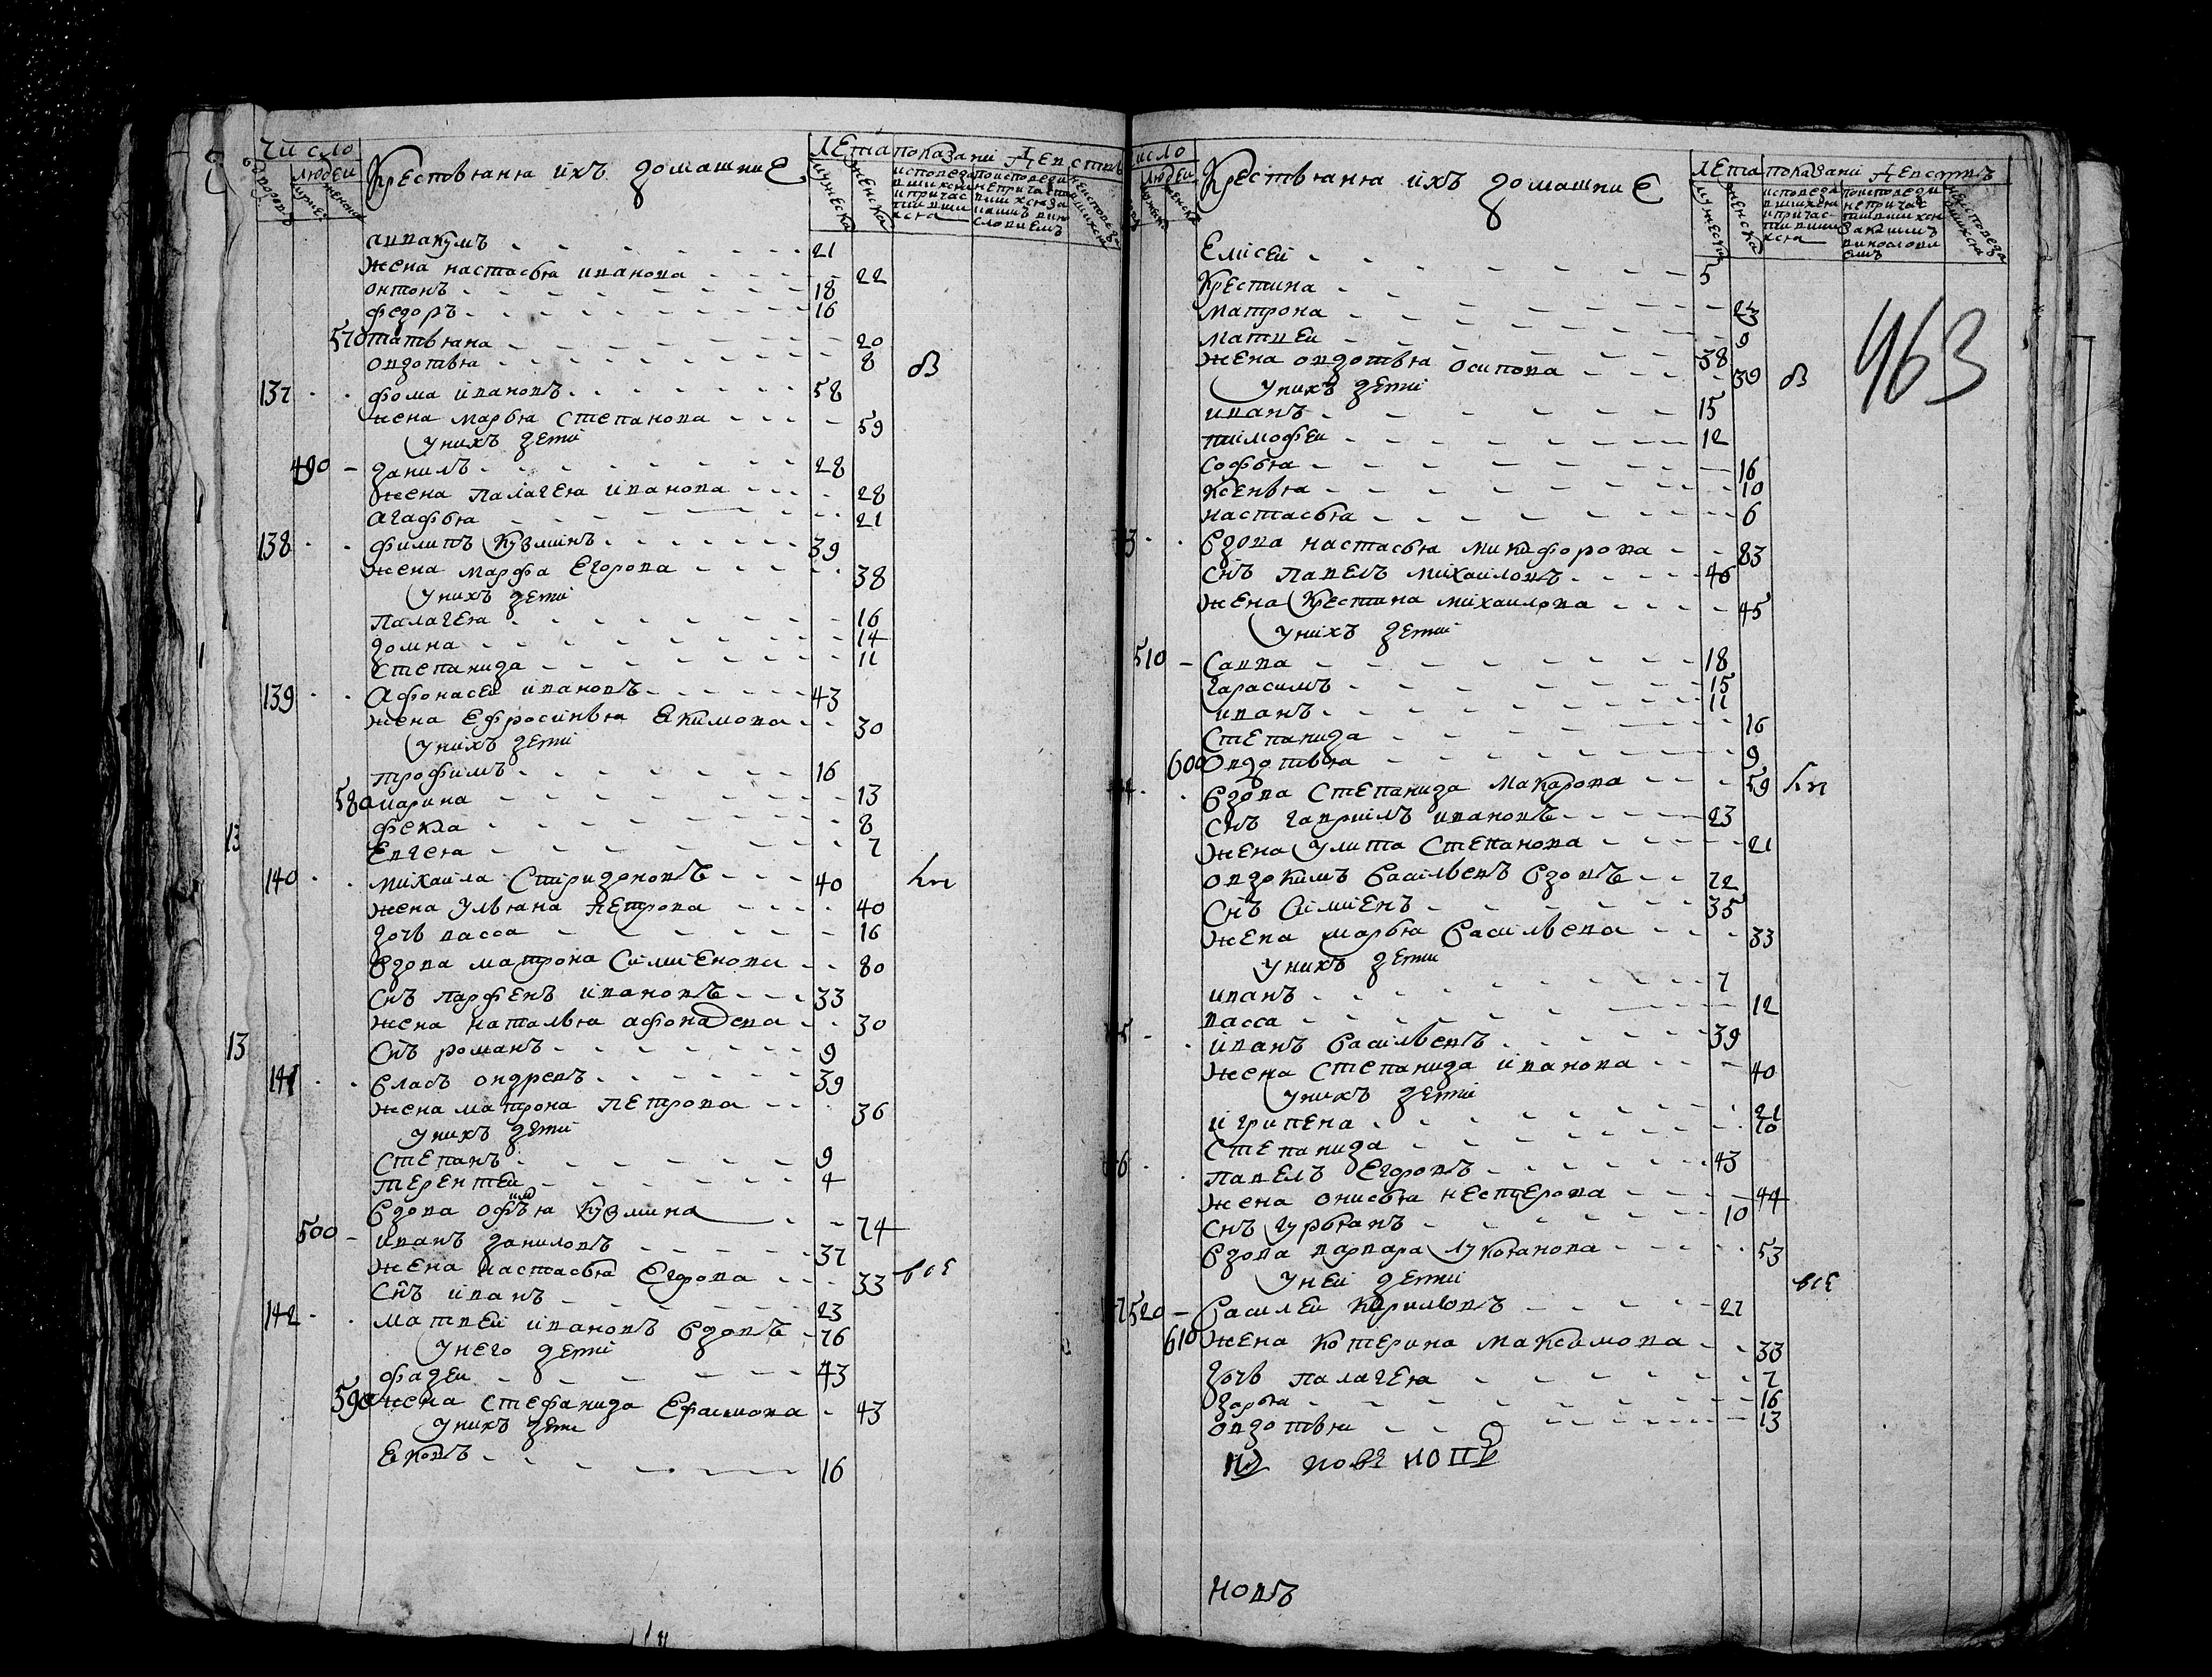 Число
людей
Крестьяня ихъ домашние
Лета
показани действъ
мужеска
женска
аввакумъ 21
жена настасья иванова 22
онтонъ 18
федоръ 16
570 татьяна 20
овдотья 8
137 фома ивановъ 58
жена марья степанова 59
у нихъ дети
490 данилъ 28
жена палагея иванова 28
агафья 21
138 филипъ кузминъ 39
жена марфа егорова 38
у нихъ дети
палагея 16
домна 14
степанида 11
139 афонасеи ивановъ 43
жена ефросинья екимова 30
у нихъ дети
трофимъ 16
580 марина 13
фекла 8
13
евгея 7
140 михаила спиридоновъ 40
жена ульяна петрова 40
дочь васса 16
вдова матрона симиенова 80
снъ парфенъ ивановъ 33
жена наталья афонасева 30
13
снъ романъ 9
141 власъ ондревъ 39
жена матрона петрова 36
у нихъ дети
степанъ 9
терентеи 4
вдова офимья кузмина 74
500 иванъ даниловъ 37
жена настасья егорова 33
снъ иванъ 23
142 матвей ивановъ вдовъ 76
у него дети
фадеи 43
590 жена стефанида ефимова 43
у нихъ дети
яковъ 16
число
людей
женска
Крестьяня ихъ домашние
Лета
показани действъ
мужеска
женска
463
елисей 5
крестина 23
матрона 9
матвеи 38
жена овдотья осипова 39
у нихъ дети
иванъ 15
тимофеи 12
софья 16
ксенья 10
настасья 6
3 вдова настасья микифорова 83
снъ павелъ михаиловъ 46
жена крестина михаилова 45
у нихъ дети
510 савва 18
гарасимъ 15
иванъ 11
степанида 16
600 овдотья 9
4 вдова степанида макарова 59
снъ гаврилъ ивановъ 23
жена улита степанова 21
овдокимъ васильевъ вдовъ 72
снъ симиенъ 35
жена марья васильева 33
у нихъ дети
иванъ 7
васса 12
5 иванъ васильевъ 39
жена степанида иванова 40
у нихъ дети
игрипена 21
степанида 10
6 павелъ егоровъ 43
жена онисья нестерова 44
снъ гурьянъ 10
вдова варвара лукоянова 53
у неи дети
7 520 василеи кириловъ 27
610 жена котерина максимова 33
дочь палагея 7
дарья 16
овдотья 13
новъ